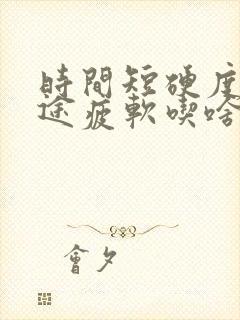 時間短硬度
途疲軟喫啥
會夕